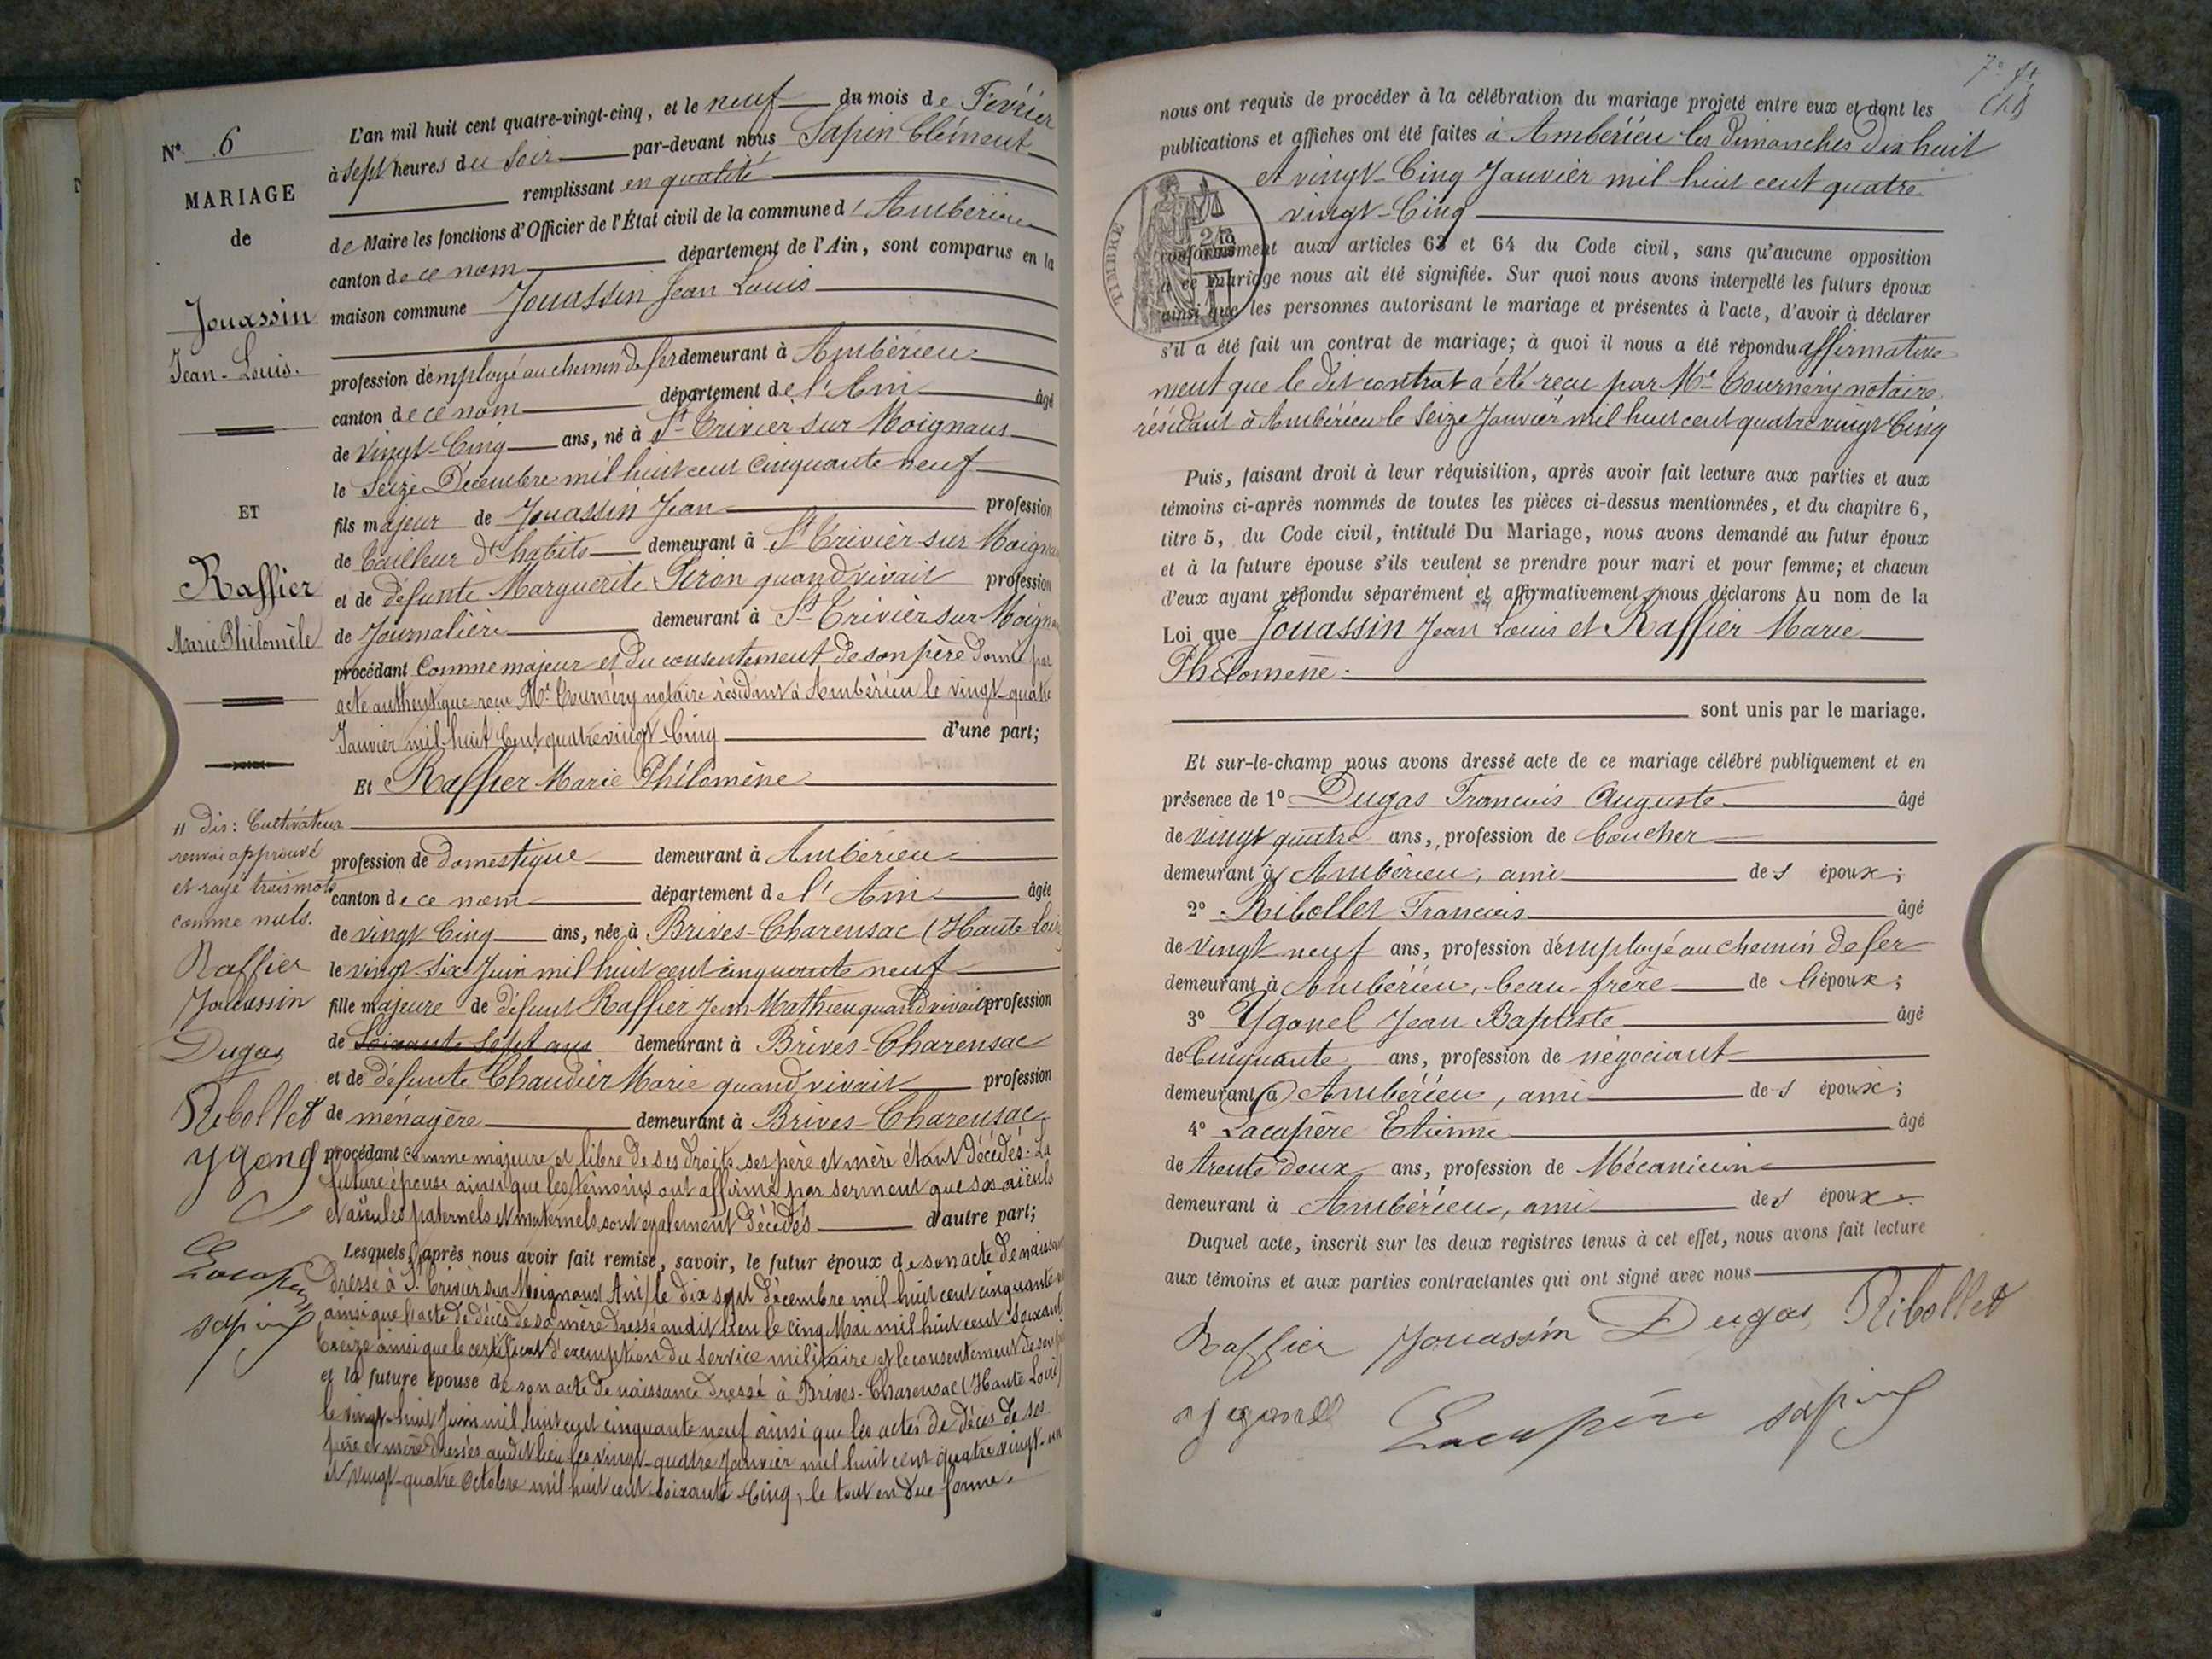 N° 6
MARIAGE
de
Jouassin
Jean-Louis.
ET
Raffier
Marie Philomèle
" Dis: Cultivateur
renvoi approuvé
et rayé trois mots
comme nuls.
Raffier
Jouassin
Dugas
Ribollet
Ygonel
Lacapère
Sapin
L'an mil huit cent quatre-vingt-cinq, et le neuf du mois de Février
à sept heures du soir par-devant nous Sapin Clément
remplissant en qualité
de Maire les fonctions d'Officier de l'État civil de la commune d'Ambérieu
canton de ce nom département de l'Ain, sont comparus en la
maison commune Jouassin Jean Louis
profession d'employé au chemin de fer demeurant à Ambérieu
canton de ce nom département de l'Ain âgé
de vingt-Cinq ans, né à St Trivier sur Moignans
le Seize Décembre mil huit cent Cinquante neuf
fils majeur de Jouassin Jean profession
de Tailleur d'habits demeurant à St Trivier sur Moigna
et de défunte Marguerite Piron quand vivait profession
de Journalière demeurant à St Trivier sur Moigna
procédant Comme majeur et du consentement de son père donné par
acte authentique reçu Me Tournéry notaire résidant à Ambérieu le vingt-quatre
Janvier mil-huit Cent quatre vingt-Cinq d'une part;
Et Raffier Marie Philomène
profession de domestique demeurant à Ambérieu
canton de ce nom département de l'Ain âgée
de vingt Cinq ans, née à Brives-Charensac (Haute Loire
le vingt-six Juin mil huit cent cinquante neuf
fille majeure de défunt Raffier Jean Mathieu quand vivait profession
de Soixante Sept ans demeurant à Brives-Charensac
et de défunte Chaudier Marie quand vivait profession
de ménagère demeurant à Brives-Charensac
procédant comme majeure et libre de ses droits ses père et mère étant décédés. La
future épouse ainsi que les témoins ont affirmé par serment que ses aïeuls
et aïeules paternels et maternels sont également décédés d'autre part;
Lesquels, après nous avoir fait remise, savoir, le futur époux de son acte de naissance
dressé à St Trivier sur Moignans (Ain) le dix sept décembre mil huit cent cinquante
ainsi que l'acte de décès de sa mère dressé audit lieu le cinq Mai mil huit cent soixante
treize ainsi que le certificat d'exemption du service militaire et le consentement de son père
et la future épouse de son acte de naissance dressé à Brives-Charensac (Haute Loire)
le vingt-huit Juin mil huit cent cinquante neuf ainsi que les actes de décès de ses
père et mère dressés audit lieu les vingt-quatre Janvier mil huit cent quatre vingt-un
et vingt-quatre Octobre mil huit cent soixante-Cinq, le tout en due forme.
nous ont requis de procéder à la célébration du mariage projeté entre eux et dont les
publications et affiches ont été faites à Ambérieu les dimanches dix huit
et vingt-Cinq Janvier mil huit cent quatre
vingt-Cinq
TIMBRE
conformément aux articles 63 et 64 du Code civil, sans qu'aucune opposition
à ce mariage nous ait été signifiée. Sur quoi nous avons interpellé les futurs époux
ainsi que les personnes autorisant le mariage et présentes à l'acte, d'avoir à déclarer
s'il a été fait un contrat de mariage; à quoi il nous a été répondu affirmative
ment que le dit contrat a été reçu par Me Tournéry notaire
résidant à Ambérieu le Seize Janvier mil huit cent quatre vingt Cinq
Puis, faisant droit à leur réquisition, après avoir fait lecture aux parties et aux
témoins ci-après nommés de toutes les pièces ci-dessus mentionnées, et du chapitre 6,
titre 5, du Code civil, intitulé Du Mariage, nous avons demandé au futur époux
et à la future épouse s'ils veulent se prendre pour mari et pour femme; et chacun
d'eux ayant répondu séparément et affirmativement, nous déclarons Au nom de la
Loi que Jouassin Jean Louis et Raffier Marie
Philomène
sont unis par le mariage.
Et sur-le-champ nous avons dressé acte de ce mariage célébré publiquement et en
présence de 1° Dugas Francois Auguste âgé
de vingt quatre ans, profession de boucher
demeurant à Ambérieu, ami des époux;
2° Ribollet Francois âgé
de vingt-neuf ans, profession d'employé au chemin de fer
demeurant à Ambérieu, beau-frère de l'époux;
3° Ygonel Jean Baptiste âgé
de Cinquante ans, profession de négociant
demeurant à Ambérieu, ami des époux;
4° Lacapère Etienne âgé
de trente deux ans, profession de Mécanicien
demeurant à Ambérieu, ami des époux.
Duquel acte, inscrit sur les deux registres tenus à cet effet, nous avons fait lecture
aux témoins et aux parties contractantes qui ont signé avec nous
Raffier Jouassin Dugas Ribollet
Ygonel Lacapère Sapin